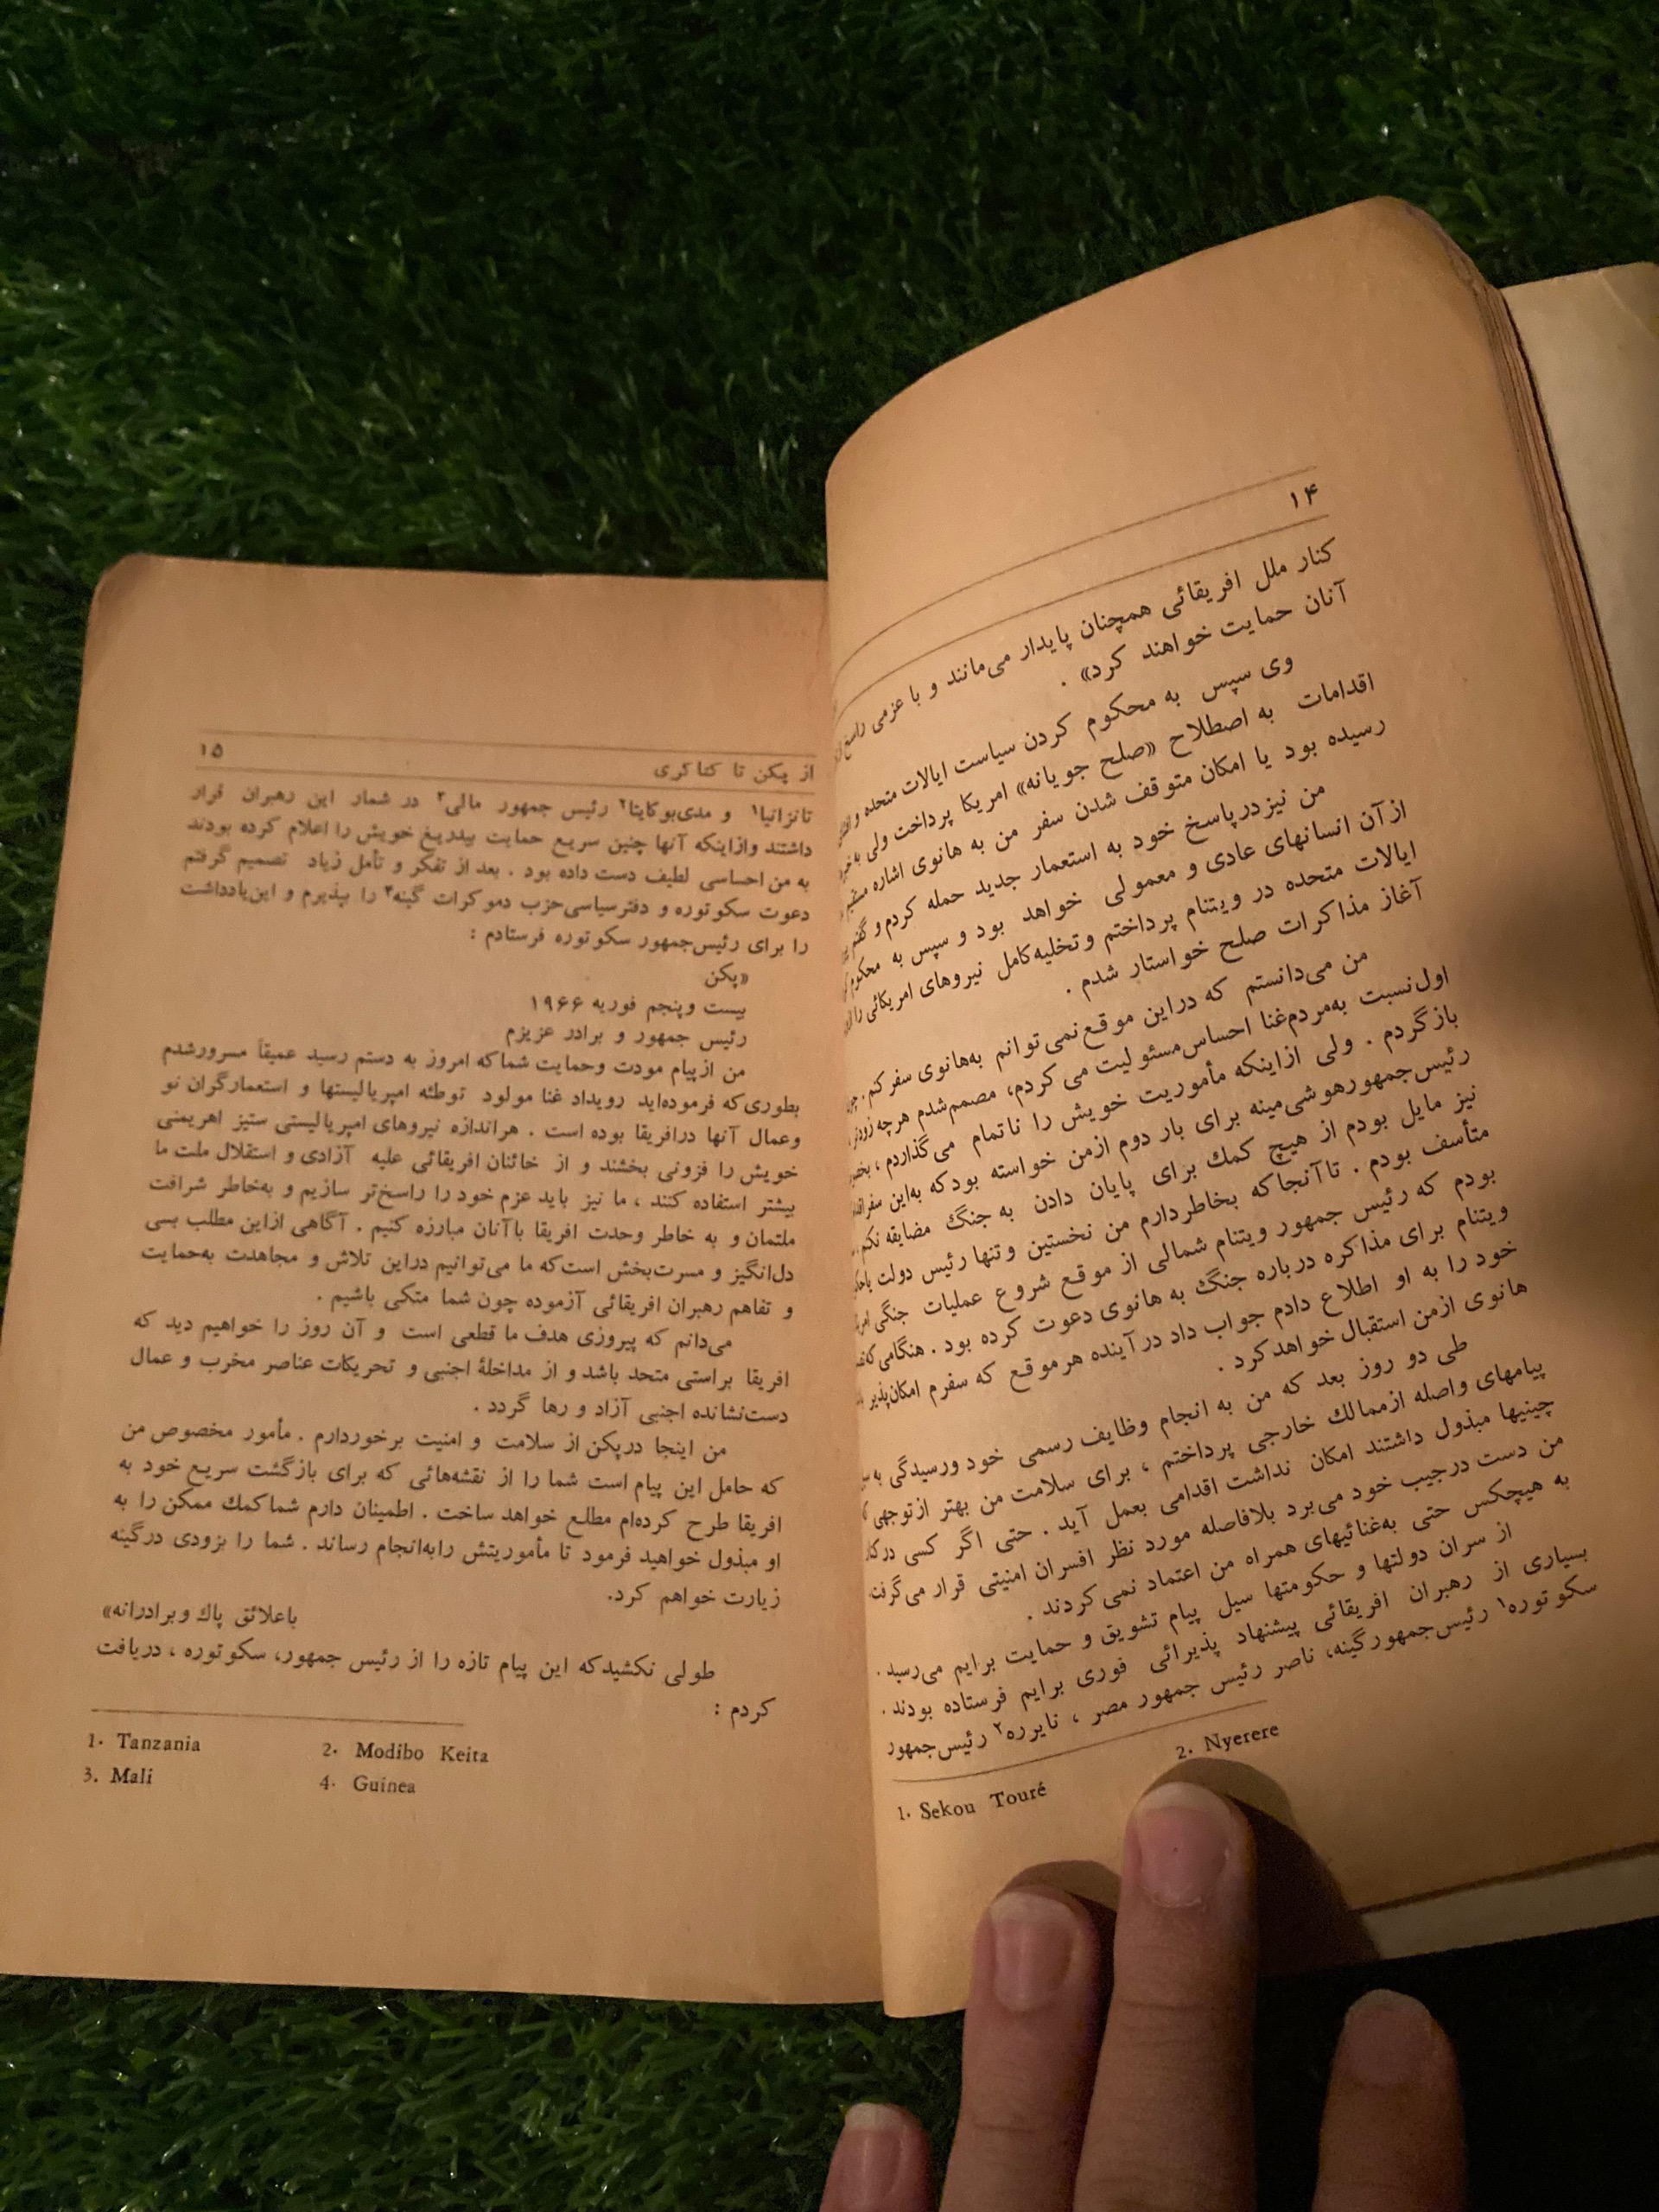 ۱۴
کنار ملل افریقائی همچنان پایدار می‌مانند و با عزمی راسخ از
آنان حمایت خواهند کرد» .
وی سپس به محکوم کردن سیاست ایالات متحده و
اقدامات به اصطلاح «صلح جویانه» امریکا پرداخت ولی به
رسیده بود یا امکان متوقف شدن سفر من به هانوی اشاره
من نیز درپاسخ خود به استعمار جدید حمله کردم و گفتم
ازآن انسانهای عادی و معمولی خواهد بود و سپس به محکوم
ایالات متحده در ویتنام پرداختم و تخلیه کامل نیروهای امریکائی را
آغاز مذاکرات صلح خواستار شدم .
من می‌دانستم که دراین موقع نمی‌توانم به‌هانوی سفرکنم .
اول نسبت به‌مردم‌غنا احساس‌مسئولیت می‌کردم، مصمم‌شدم هرچه زودتر
بازگردم . ولی ازاینکه مأموریت خویش را ناتمام می‌گذاردم ،
رئیس‌جمهورهوشی‌مینه برای بار دوم ازمن خواسته بودکه به‌این سفر
نیز مایل بودم از هیچ کمك برای پایان دادن به جنگ مضایقه نکم
متأسف بودم . تاآنجاکه بخاطردارم من نخستین وتنها رئیس دولت
بودم که رئیس جمهور ویتنام شمالی از موقع شروع عملیات جنگی
ویتنام برای مذاکره درباره جنگ به هانوی دعوت کرده بود . هنگامی‌که
خود را به او اطلاع دادم جواب داد درآینده هرموقع که سفرم امکان‌پذیر
هانوی ازمن استقبال خواهدکرد .
طی دو روز بعد که من به انجام وظایف رسمی خود ورسیدگی به
پیامهای واصله ازممالك خارجی پرداختم ، برای سلامت من بهتر ازتوجهی
چینیها مبذول داشتند امکان نداشت اقدامی بعمل آید . حتی اگر کسی
من دست درجیب خود می‌برد بلافاصله مورد نظر افسران امنیتی قرار می‌گرفت
به هیچکس حتی به‌غنائیهای همراه من اعتماد نمی‌کردند .
از سران دولتها و حکومتها سیل پیام تشویق و حمایت برایم می‌رسید .
بسیاری از رهبران افریقائی پیشنهاد پذیرائی فوری برایم فرستاده بودند .
سکوتوره۱ رئیس‌جمهورگینه، ناصر رئیس جمهور مصر ، نایرره۲ رئیس‌جمهور
1. Sekou Touré 2. Nyerere
از پکن تا کناکری ۱۵
تانزانیا۱ و مدی‌بوکایتا۲ رئیس جمهور مالی۳ در شمار این رهبران قرار
داشتند وازاینکه آنها چنین سریع حمایت بیدریغ خویش را اعلام کرده بودند
به من احساسی لطیف دست داده بود . بعد از تفکر و تأمل زیاد تصمیم گرفتم
دعوت سکوتوره و دفترسیاسی‌حزب دموکرات گینه۴ را بپذیرم و این‌یادداشت
را برای رئیس‌جمهور سکوتوره فرستادم :
«پکن
بیست وپنجم فوریه ۱۹۶۶
رئیس جمهور و برادر عزیزم
من ازپیام مودت وحمایت شماکه امروز به دستم رسید عمیقاً مسرورشدم
بطوری‌که فرموده‌اید رویداد غنا مولود توطئه امپریالیستها و استعمارگران نو
وعمال آنها درافریقا بوده است . هراندازه نیروهای امپریالیستی ستیز اهریمنی
خویش را فزونی بخشند و از خائنان افریقائی علیه آزادی و استقلال ملت ما
بیشتر استفاده کنند ، ما نیز باید عزم خود را راسخ‌تر سازیم و به‌خاطر شرافت
ملتمان و به خاطر وحدت افریقا باآنان مبارزه کنیم . آگاهی ازاین مطلب بسی
دل‌انگیز و مسرت‌بخش است‌که ما می‌توانیم دراین تلاش و مجاهدت به‌حمایت
و تفاهم رهبران افریقائی آزموده چون شما متکی باشیم .
می‌دانم که پیروزی هدف ما قطعی است و آن روز را خواهیم دید که
افریقا براستی متحد باشد و از مداخلهٔ اجنبی و تحریکات عناصر مخرب و عمال
دست‌نشانده اجنبی آزاد و رها گردد .
من اینجا درپکن از سلامت و امنیت برخوردارم . مأمور مخصوص من
که حامل این پیام است شما را از نقشه‌هائی که برای بازگشت سریع خود به
افریقا طرح کرده‌ام مطلع خواهد ساخت . اطمینان دارم شماکمك ممکن را به
او مبذول خواهید فرمود تا مأموریتش رابه‌انجام رساند . شما را بزودی درگینه
زیارت خواهم کرد.
باعلائق پاك وبرادرانه»
طولی نکشیدکه این پیام تازه را از رئیس جمهور، سکوتوره ، دریافت
کردم :
1. Tanzania 2. Modibo Keita
3. Mali 4. Guinea